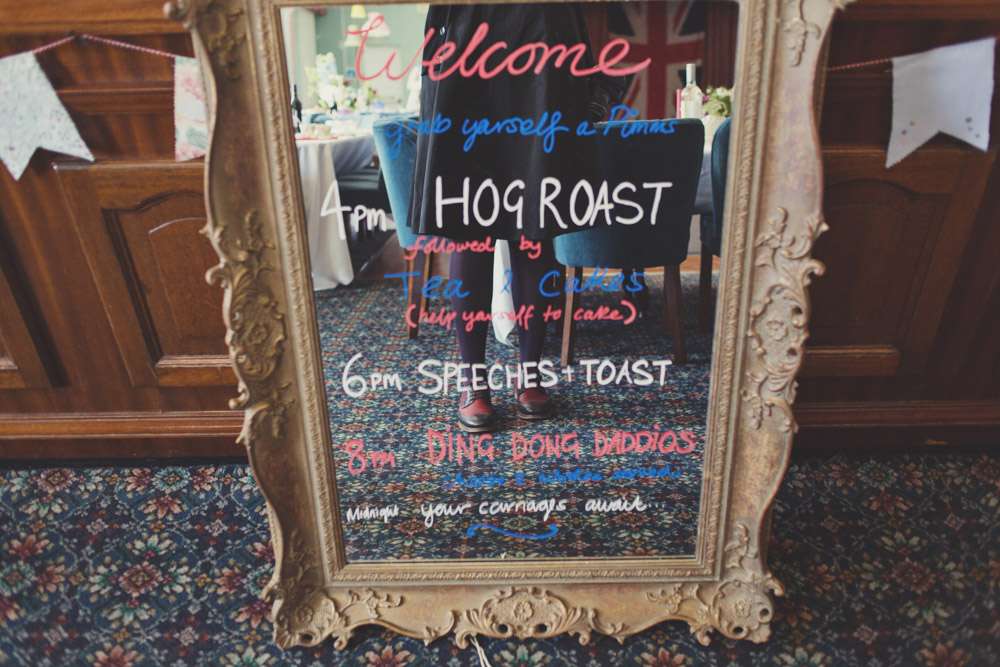 Welcome
grab yourself a Pimms
4PM HOG ROAST
followed by
Tea & Cakes
(help yourself to cake)
6PM SPEECHES + TOAST
8PM DING DONG DADDIOS
Midnight your carriages await...